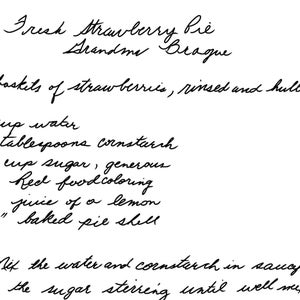 Fresh Strawberry Pie
Grandma Brague
baskets of strawberries, rinsed and hull
cup water
tablespoons cornstarch
cup sugar, generous
Red food coloring
juice of a lemon
" baked pie shell
Mix the water and cornstarch in sauce
the sugar stirring until well mix